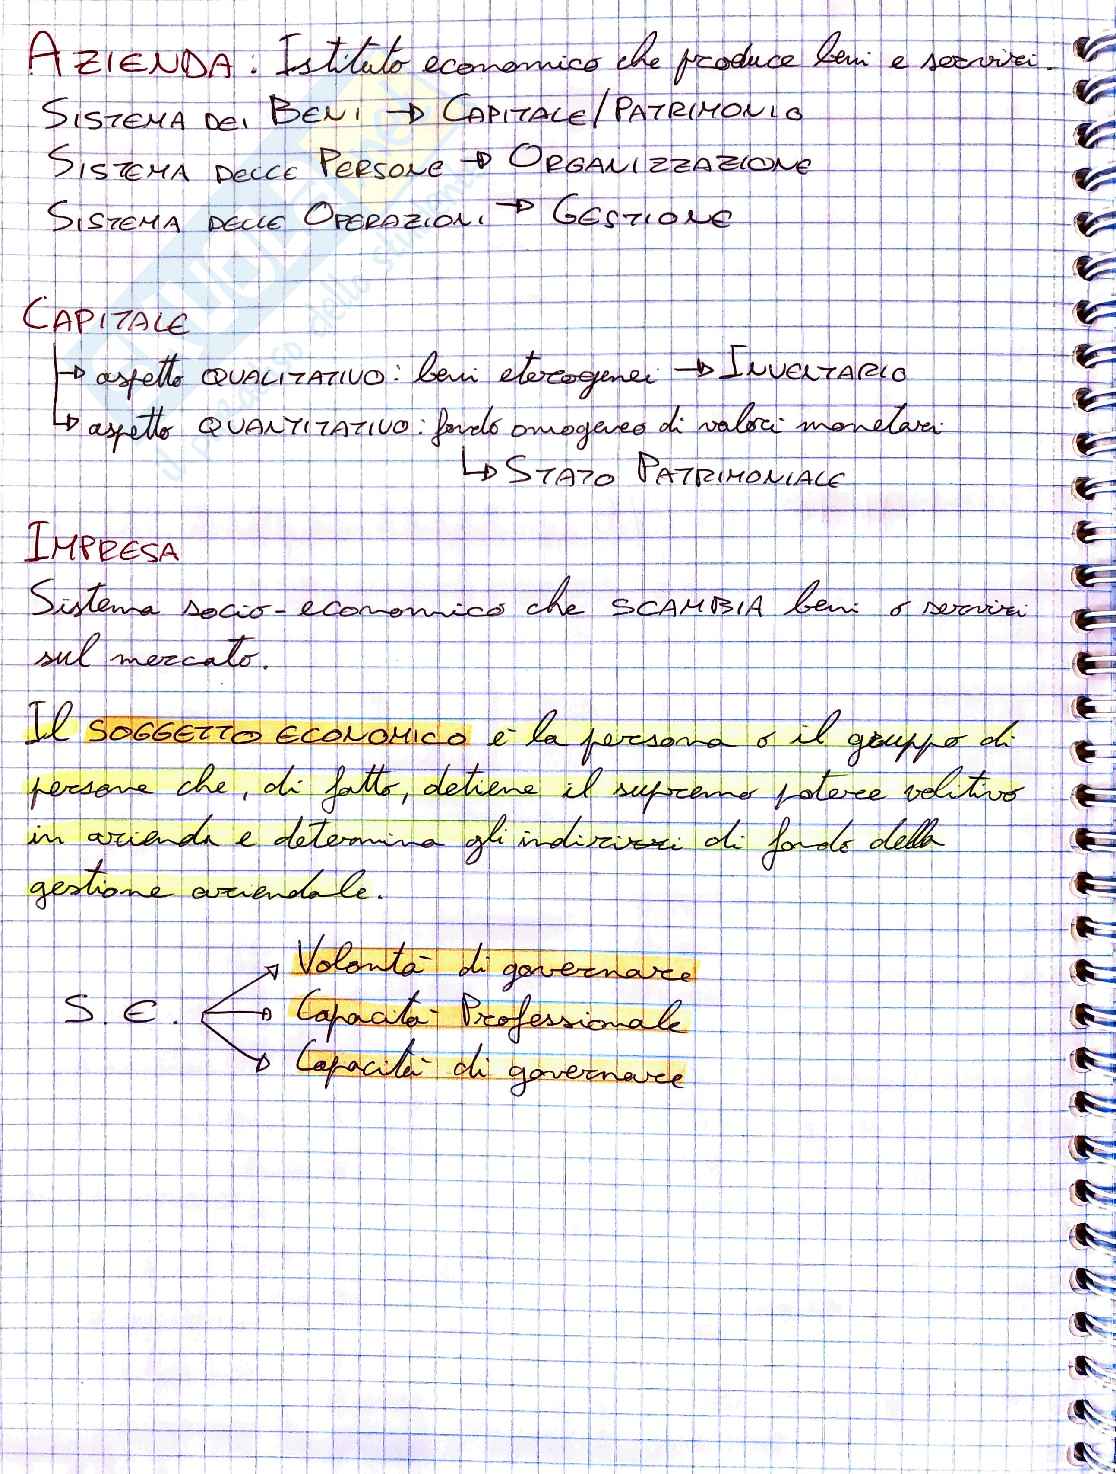 AZIENDA: Istituto economico che produce beni e servizi.
SISTEMA DEI BENI → CAPITALE/PATRIMONIO
SISTEMA DELLE PERSONE → ORGANIZZAZIONE
SISTEMA DELLE OPERAZIONI → GESTIONE
CAPITALE
→ aspetto QUALITATIVO: beni eterogenei → INVENTARIO
→ aspetto QUANTITATIVO: fondo omogeneo di valori monetari
↳ STATO PATRIMONIALE
IMPRESA
Sistema socio-economico che SCAMBIA beni o servizi
sul mercato.
Il SOGGETTO ECONOMICO è la persona o il gruppo di
persone che, di fatto, detiene il supremo potere volitivo
in azienda e determina gli indirizzi di fondo della
gestione aziendale.
Volontà di governare
S.E. → Capacità Professionale
Capacità di governare